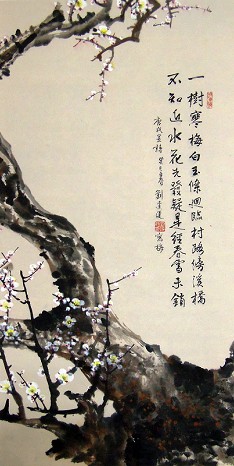 一樹寒梅白玉條迥臨村路傍溪橋
不知近水花先發疑是經春雪未銷
唐戎昱詩 劉 寫梅